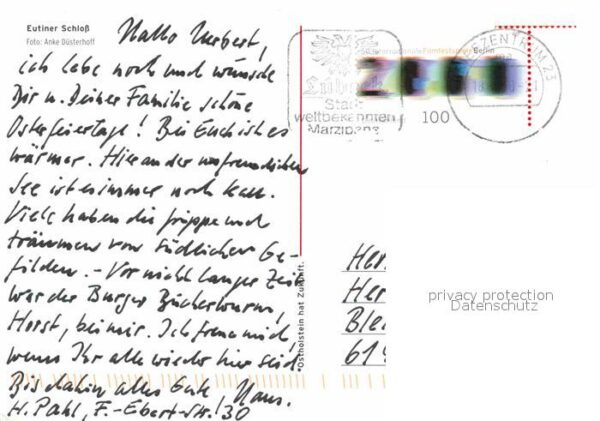 Eutiner Schloß
Foto: Anke Düsterhoff
Hallo Herbert,
ich lebe noch und wünsche
Dir u. Deiner Familie schöne
Osterfeiertage! Bei Euch ist es
wärmer. Hier an der unfreundlichen
See ist es immer noch kalt.
Viele haben die Grippe und
träumen von südlichen Ge-
filden. – Vor nicht langer Zeit
war der Burger Bücherwurm,
Horst, bei mir. Ich freue mich,
wenn Ihr alle wieder hier seid.
Bis dahin alles Gute Hans.
H. Pahl, F.-Ebert-Str. 30
Ostholstein hat Zukunft.
Internationale Filmfestspiele Berlin
Lübeck
Stadt
weltbekannten
Marzipans
100
ZENTRUM 23
18
Her
Her
Ble
619
privacy protection
Datenschutz